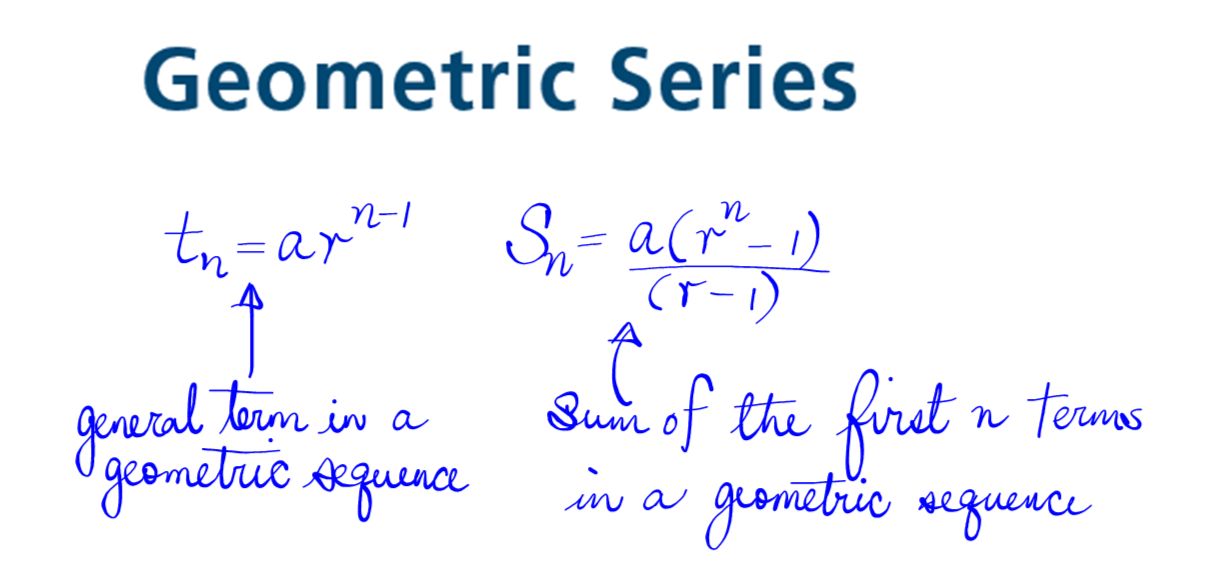 Geometric Series
tₙ = arⁿ⁻¹
Sₙ = a(rⁿ - 1)
(r - 1)
general term in a
geometric sequence
Sum of the first n terms
in a geometric sequence